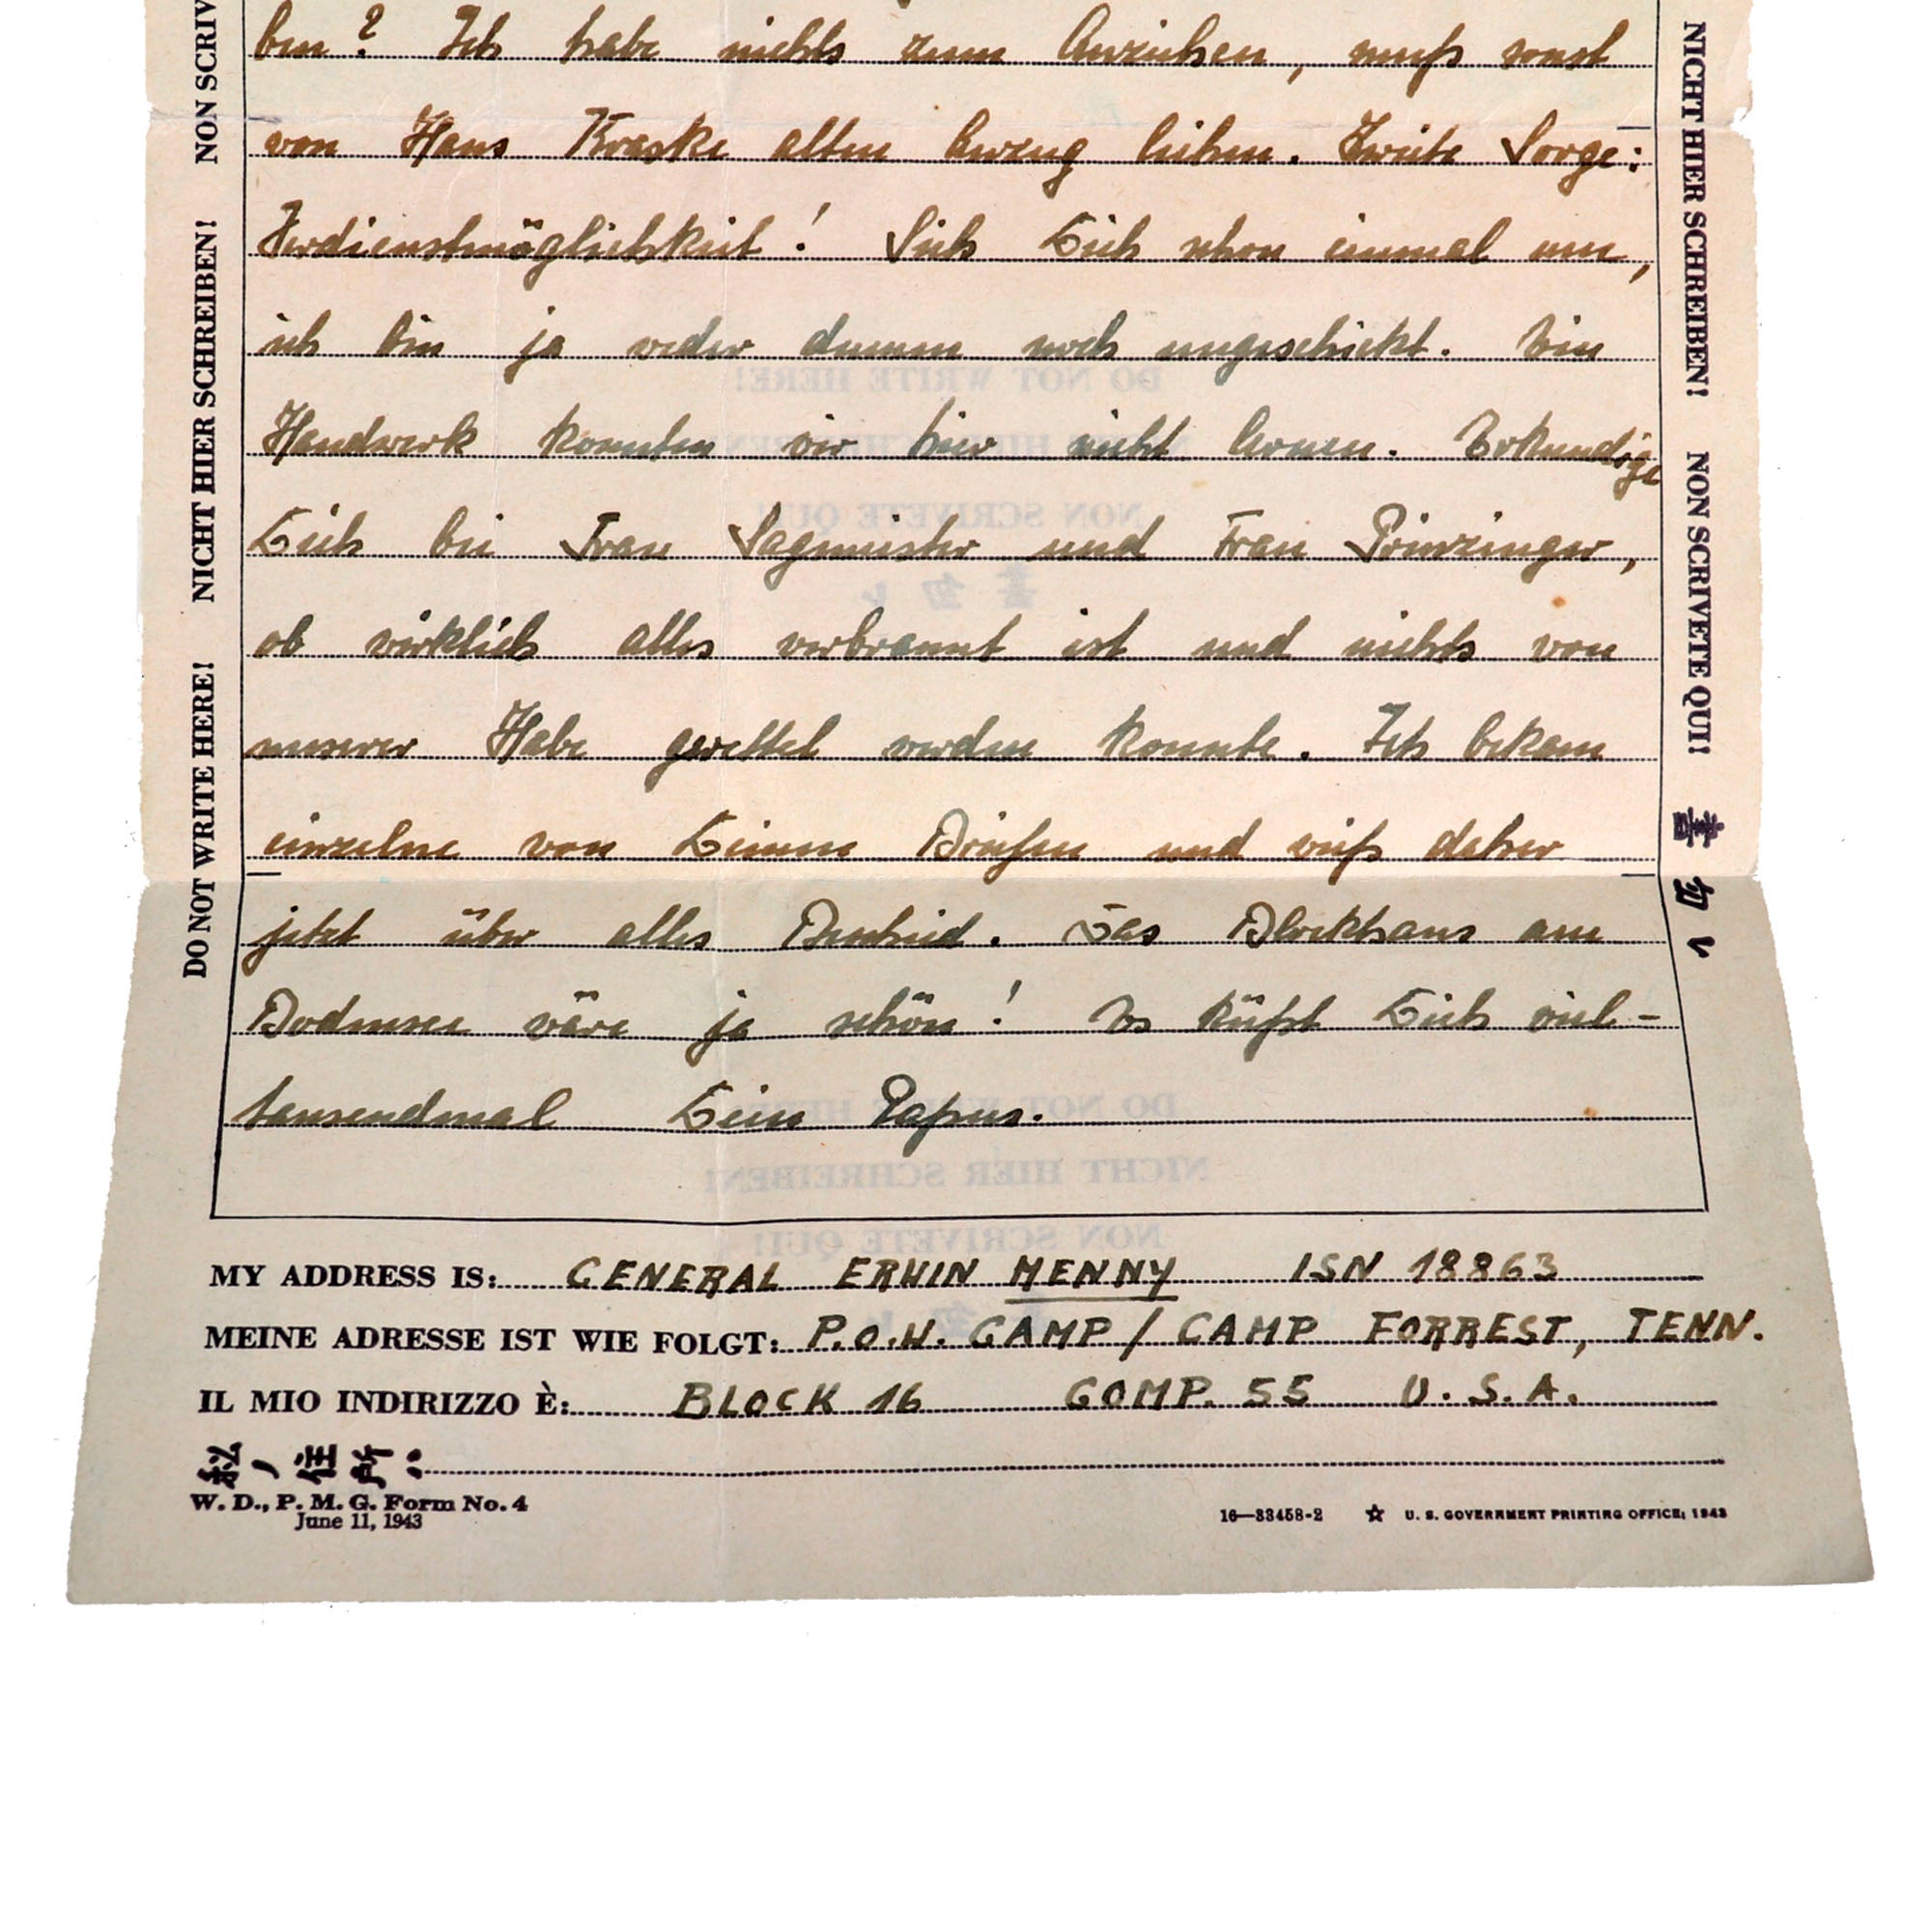 ben? Ich habe nichts zum Anziehen, muß sonst
von Hans Kraske alten Anzug leihen. Zweite Sorge:
Verdienstmöglichkeit! Sieh Dich schon einmal um,
ich bin ja weder dumm noch ungeschickt. Ein
Handwerk konnten wir hier nicht lernen. Erkundige
Dich bei Frau Sagmeister und Frau Prinzinger,
ob wirklich alles verbrannt ist und nichts von
unserer Habe gerettet werden konnte. Ich bekam
einzelne von Deinen Briefen und weiß daher
jetzt über alles Bescheid. Das Blockhaus am
Bodensee wäre ja schön! Es küßt Dich viel-
tausendmal Dein Papus.
MY ADDRESS IS: GENERAL ERWIN MENNY ISN 18863
MEINE ADRESSE IST WIE FOLGT: P.O.W. CAMP / CAMP FORREST, TENN.
IL MIO INDIRIZZO È: BLOCK 16 COMP. 55 U.S.A.
私ノ住所:
W. D., P. M. G. Form No. 4
June 11, 1943
16—33458-2 ☆ U. S. GOVERNMENT PRINTING OFFICE: 1943
DO NOT WRITE HERE! NICHT HIER SCHREIBEN! NON SCRIV
NICHT HIER SCHREIBEN! NON SCRIVETE QUI! 書勿レ
DO NOT WRITE HERE!
NICHT HIER SCHREIBEN!
NON SCRIVETE QUI!
書勿レ
DO NOT WRITE HERE!
NICHT HIER SCHREIBEN!
NON SCRIVETE QUI!